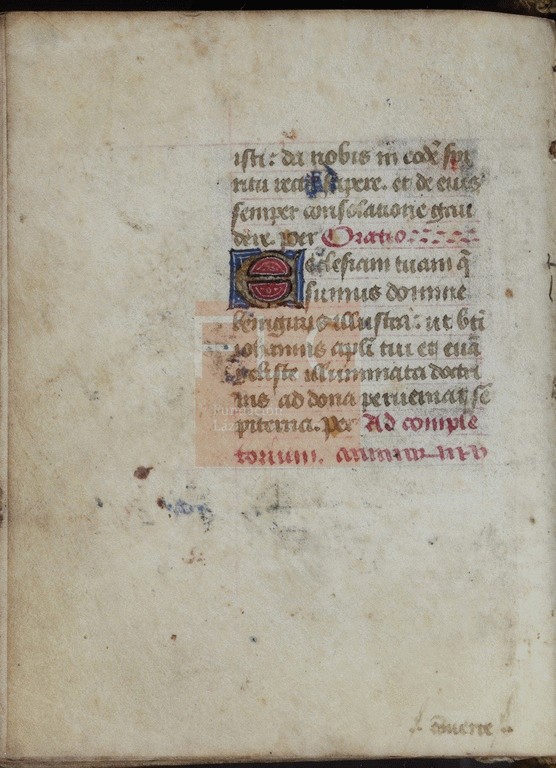 isti: da nobis in eodē spi
ritu recta sapere. et de eius
semper consolatione gau
dere. per Oratio
Ecclesiam tuam q̄
sumus domine
benignus illustra: ut bti
iohannis apli tui et euā
geliste illuminata doctri
nis ad dona perueniat sē
piterna. per Ad comple
torium.
Fundación